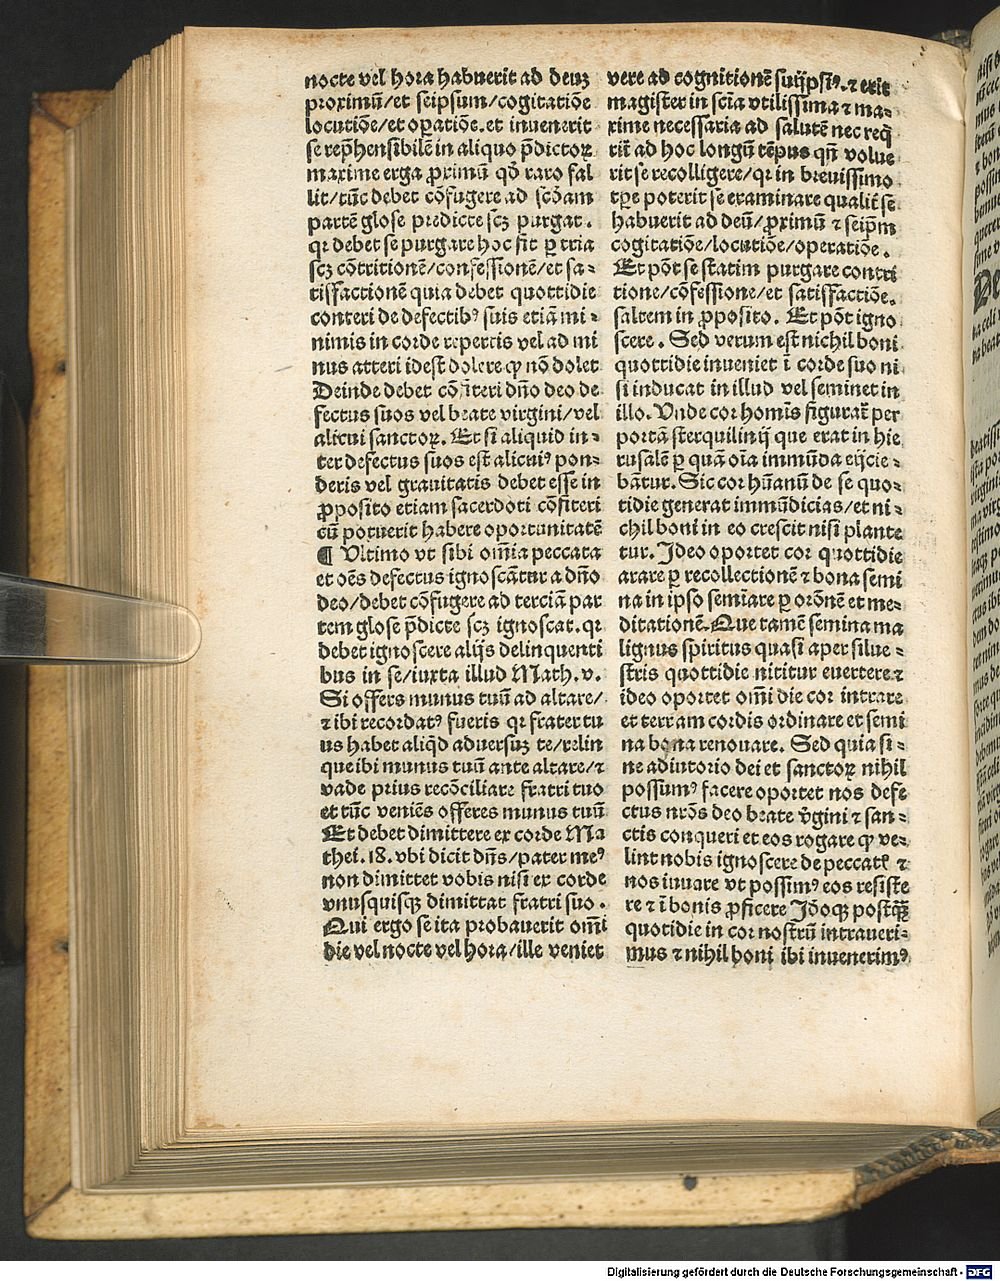 nocte vel hora habuerit ad deuʒ
proximū/et seipsum/cogitatiōe
locutiōe/et oꝑatiōe.et inuenerit
se rep̄hensibilē in aliquo p̄dictoꝝ
maxime erga ꝓximū qḋ raro fal
lit/tūc debet cōfugere ad scḋam
partē glose predicte scʒ purgat.
qꝛ debet se purgare hoc fit ꝑ tria
scʒ cōtritionē/confessionē/et sa-
tisfactionē quia debet quottidie
conteri de defectibꝰ suis etiā mi-
nimis in corde repertis vel ad mi
nus atteri idest dolere ꝙ nō dolet
Deinde debet cōfiteri dño deo de
fectus suos vel beate virgini/vel
alicui sanctoꝝ. Et si aliquid in-
ter defectus suos est alicuiꝰ pon-
deris vel grauitatis debet esse in
ꝓposito etiam sacerdoti cōfiteri
cū potuerit habere oportunitatē
¶ Vltimo vt sibi om̄ia peccata
et oēs defectus ignoscātur a dño
deo/debet cōfugere ad terciā par
tem glose p̄dicte scʒ ignoscat. qꝛ
debet ignoscere alijs delinquenti
bus in se/iuxta illud Math. v.
Si offers munus tuū ad altare/
⁊ ibi recordatꝰ fueris qꝛ frater tu
us habet aliqḋ aduersuʒ te/relin
que ibi munus tuū ante altare/⁊
vade prius recōciliare fratri tuo
et tūc veniēs offeres munus tuū
Et debet dimittere ex corde Ma
thei.18.vbi dicit dñs/pater meꝰ
non dimittet vobis nisi ex corde
vnusquisqꝫ dimittat fratri suo.
Qui ergo se ita probauerit om̄i
die vel nocte vel hora/ille veniet
vere ad cognitionē suijpsiꝰ.⁊ erit
magister in scīa vtilissima ⁊ ma-
xime necessaria ad salutē nec req̄
rit̄ ad hoc longū tēpus qñ volue
rit se recolligere/qꝛ in breuissimo
tꝑe poterit se examinare qualit̄ se
habuerit ad deū/ꝓximū ⁊ seip̄m
cogitatiōe/locutiōe/operatiōe.
Et pōt se statim purgare contri
tione/cōfessione/et satisfactiōe.
saltem in ꝓposito. Et pōt igno
scere. Sed verum est nichil boni
quottidie inueniet ī corde suo ni
si inducat in illud vel seminet in
illo. Vnde cor homīs figurat̄ per
portā sterquilinij que erat in hie
rusalē ꝑ quā oīa immūda eijcie-
bātur. Sic cor hūanū de se quo-
tidie generat immūdicias/et ni-
chil boni in eo crescit nisi plante
tur. Ideo oportet cor quottidie
arare ꝑ recollectionē ⁊ bona semi
na in ipso semīare ꝑ orōnē et me-
ditationē. Que tamē semina ma
lignus spiritus quasi aper silue-
stris quottidie nititur euertere ⁊
ideo oportet om̄i die cor intrare
et terram cordis ordinare et semi
na bona renouare. Sed quia si-
ne adiutorio dei et sanctoꝝ nihil
possumꝰ facere oportet nos defe
ctus nr̄os deo beate v̄gini ⁊ san-
ctis conqueri et eos rogare ꝙ ve-
lint nobis ignoscere de peccatꝭ ⁊
nos iuuare vt possimꝰ eos resiste
re ⁊ ī bonis ꝓficere Iḋoqꝫ postq̄ꝫ
quotidie in cor nostrū intraueri-
mus ⁊ nihil boni ibi inuenerimꝰ
Digitalisierung gefördert durch die Deutsche Forschungsgemeinschaft - DFG